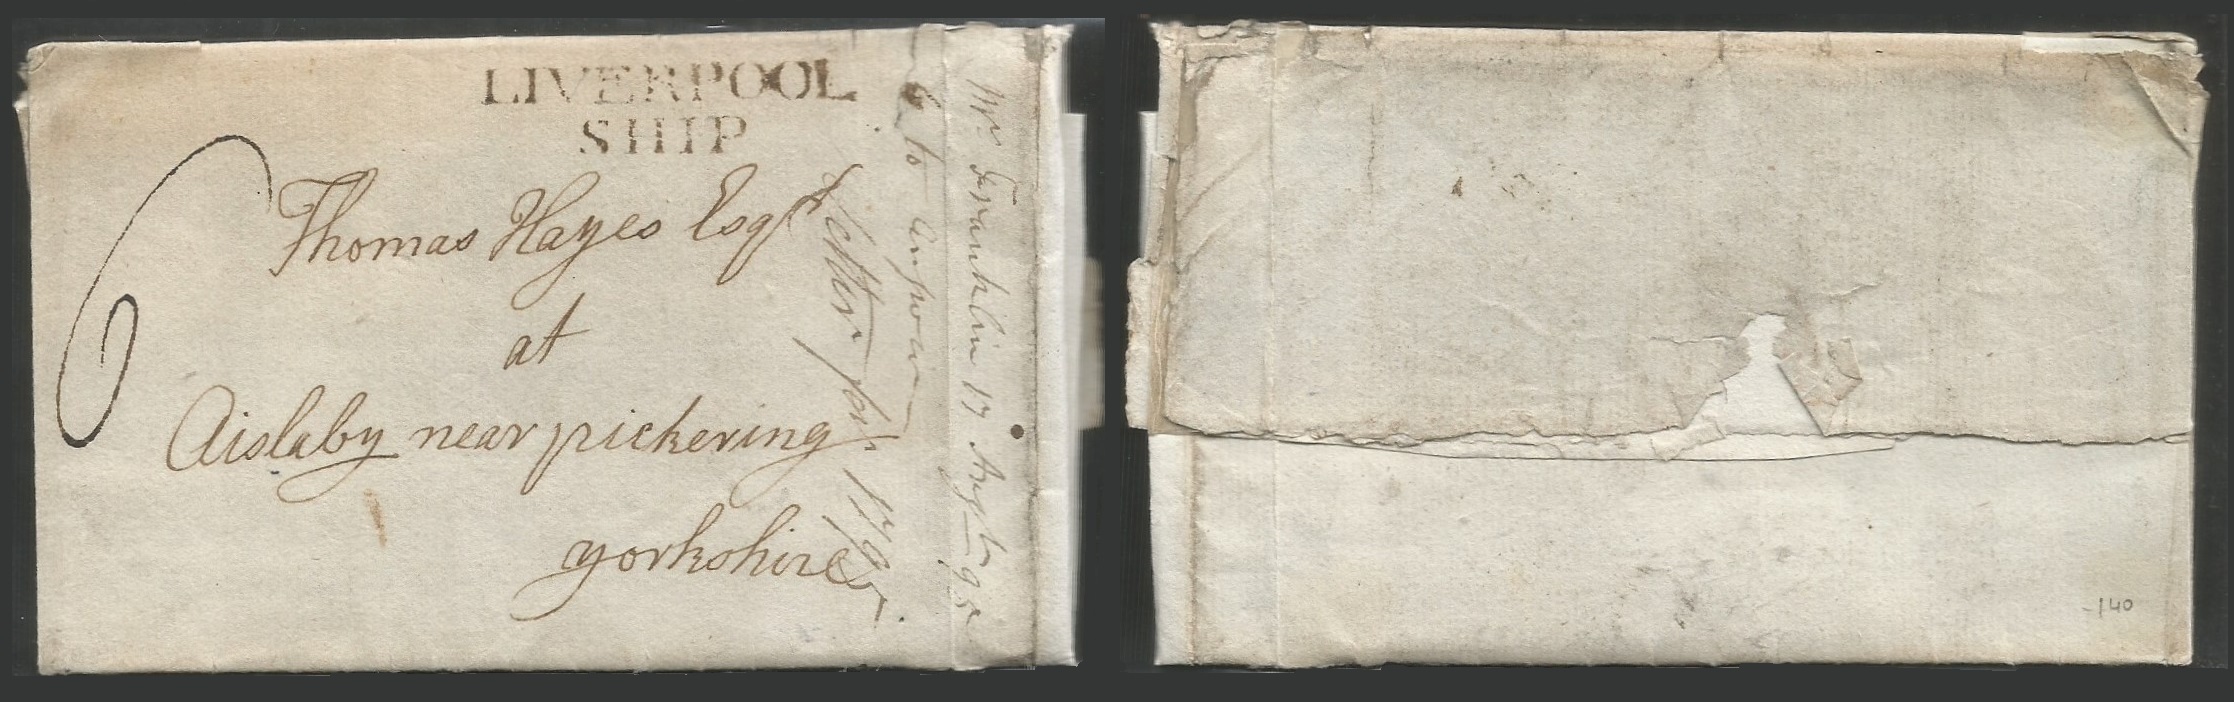 LIVERPOOL
SHIP
6
Thomas Hayes Esqr
at
Aislaby near pickering
yorkshire
Letter for 1795
to Answer
Mr Franklin 17 Augt 95
-140